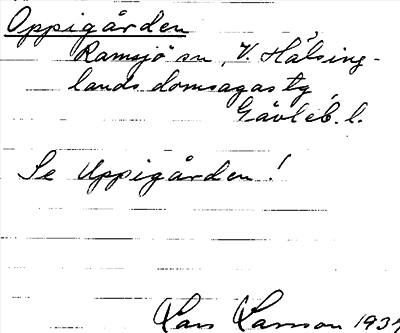 Oppigården
Ramsjö sn, V. Hälsing-
lands domsagas tg,
Gävleb. l.
Se Uppigården!
Lars Larsson